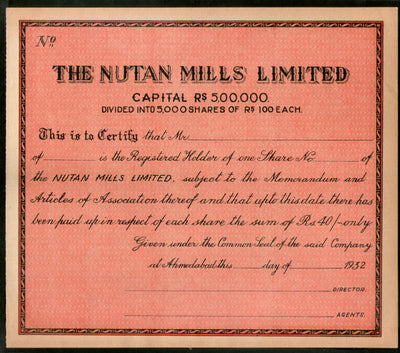 No
THE NUTAN MILLS LIMITED
CAPITAL RS 5,00,000.
DIVIDED INTO 5,000 SHARES OF RS 100 EACH.
This is to Certify that Mr.
of is the Registered Holder of one Share No. of
the NUTAN MILLS LIMITED, subject to the Memorandum and
Articles of Association thereof and that upto this date there has
been paid up in respect of each share the sum of Rs 40/-only
Given under the Common Seal of the said Company
at Ahmedabad this day of 1932
DIRECTOR.
AGENTS.